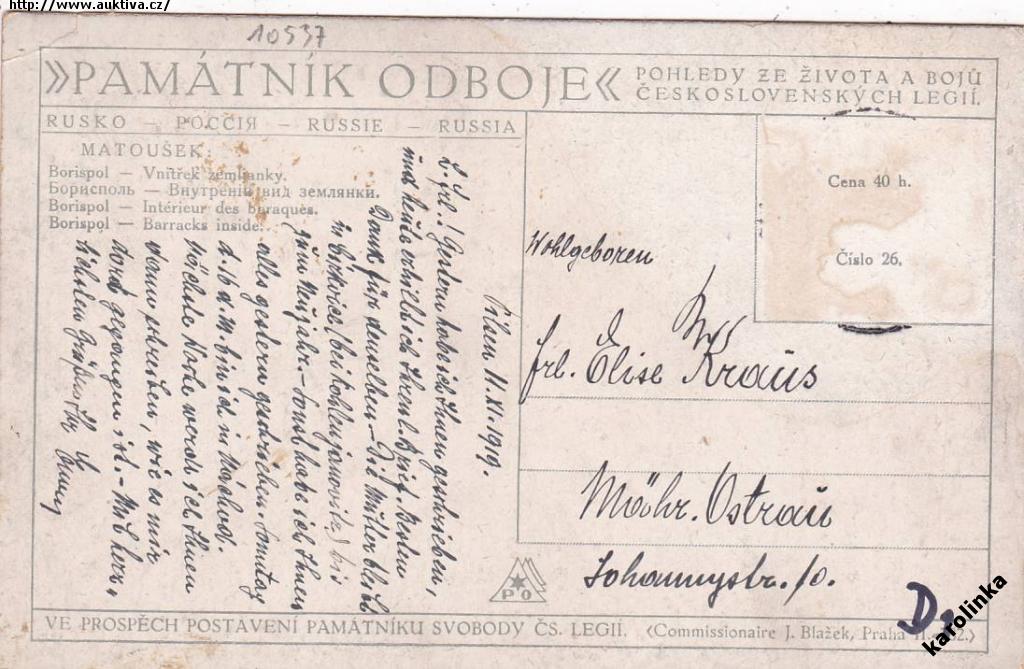 http://www.auktiva.cz/
10537
»PAMÁTNÍK ODBOJE«
POHLEDY ZE ŽIVOTA A BOJŮ
ČESKOSLOVENSKÝCH LEGIÍ.
RUSKO — РОССІЯ — RUSSIE — RUSSIA
MATOUŠEK:
Borispol — Vnitřek zemljanky.
Борисполь — Внутреній вид землянки.
Borispol — Intérieur des baraques.
Borispol — Barracks inside.
Pilsen 11.XI.1919.
L. Frl.! Gestern habe ich Ihnen geschrieben,
und heute erhielt ich Ihren l. Brief. Vielen
Dank für denselben. – Die Mutter bleibt
in (bei) bis
zum Neujahr. – sonst habe ich Ihnen
alles gestern geschrieben. Sonntag
d. 16 d. M. bin ich in Náchod.
Nächste Woche werde ich Ihnen
dann schreiben, wie es mir
dort gegangen ist. – Mit herz-
lichsten Grüßen Ihr
Cena 40 h.
Číslo 26.
Wohlgeboren
Frl. Elise Kraus
Mähr. Ostrau
Johannystr. 10.
PO
D.
karolinka
VE PROSPĚCH POSTAVENÍ PAMÁTNÍKU SVOBODY ČS. LEGIÍ. <Commissionaire J. Blažek, Praha II.